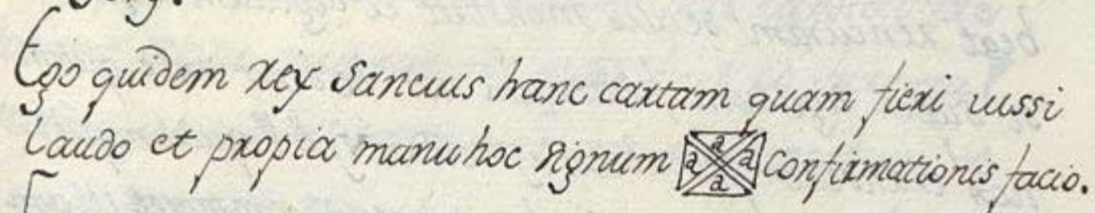 Ego quidem rex Sancius hanc cartam quam fieri iussi
laudo et propia manu hoc signum a a a a Confirmationis facio.